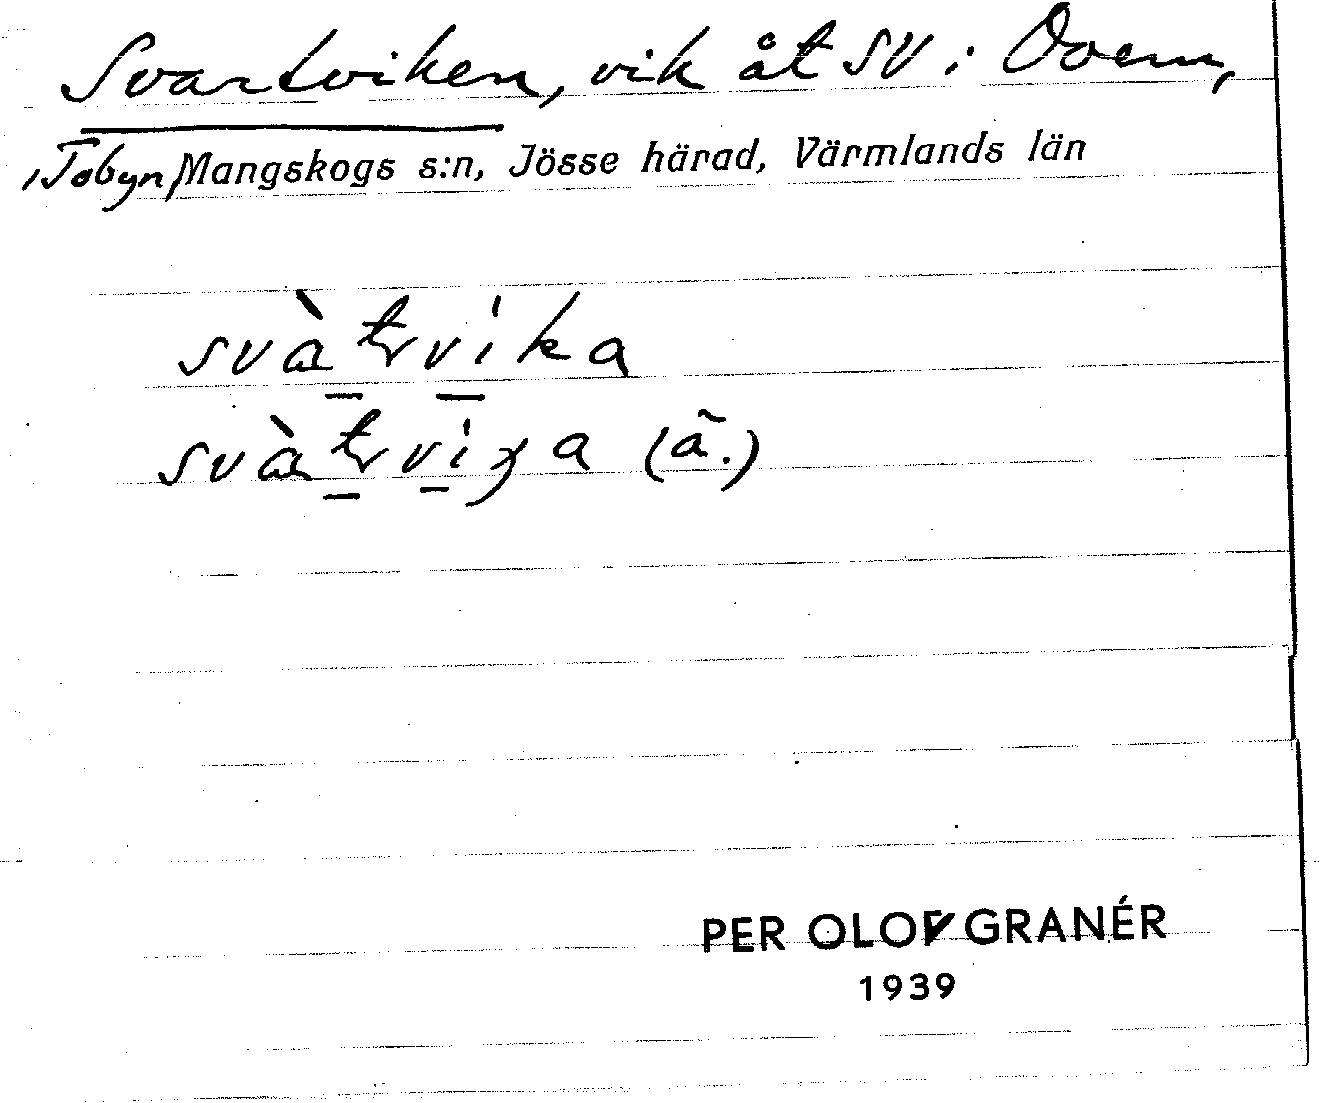 Svartviken, vik åt SV i Doem,
i Tobyn, Mangskogs s:n, Jösse härad, Värmlands län
svàtvika
svàtviʒa (ä.)
PER OLOF GRANÉR
1939